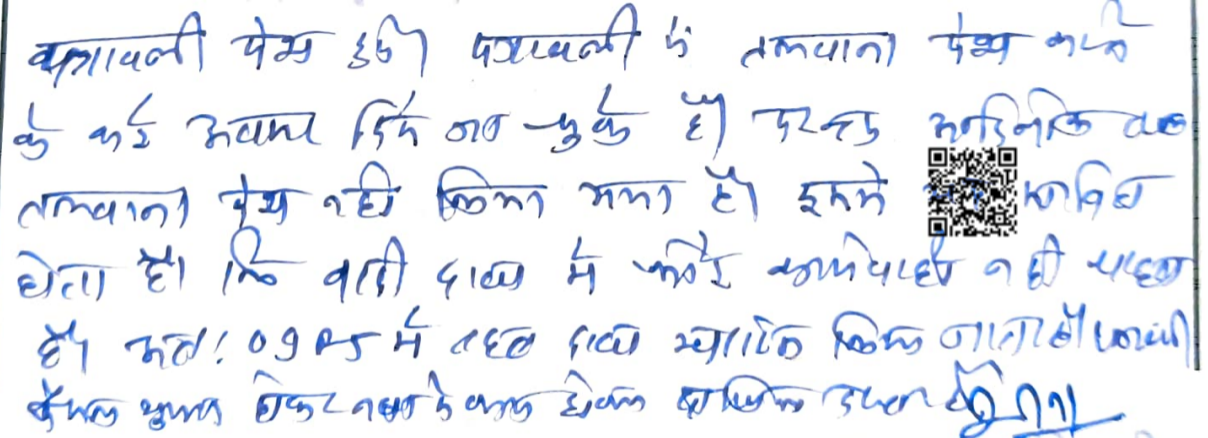 पत्रावली पेश हुई। पत्रावली में तलवाना पेश करने
के कई अवसर दिये जा चुके है। परन्तु आदिनांक तक
तलवाना पेश नही किया गया है। इससे साबित
होता है। कि वादी दावा में कोई कार्यवाही नही चाहता
है। अतः 09 R5 में तहत दावा खारिज किया जाता है। पत्रावली
फैसल शुमार होकर नम्बर से कम होकर दाखिल दफ्तर हो।